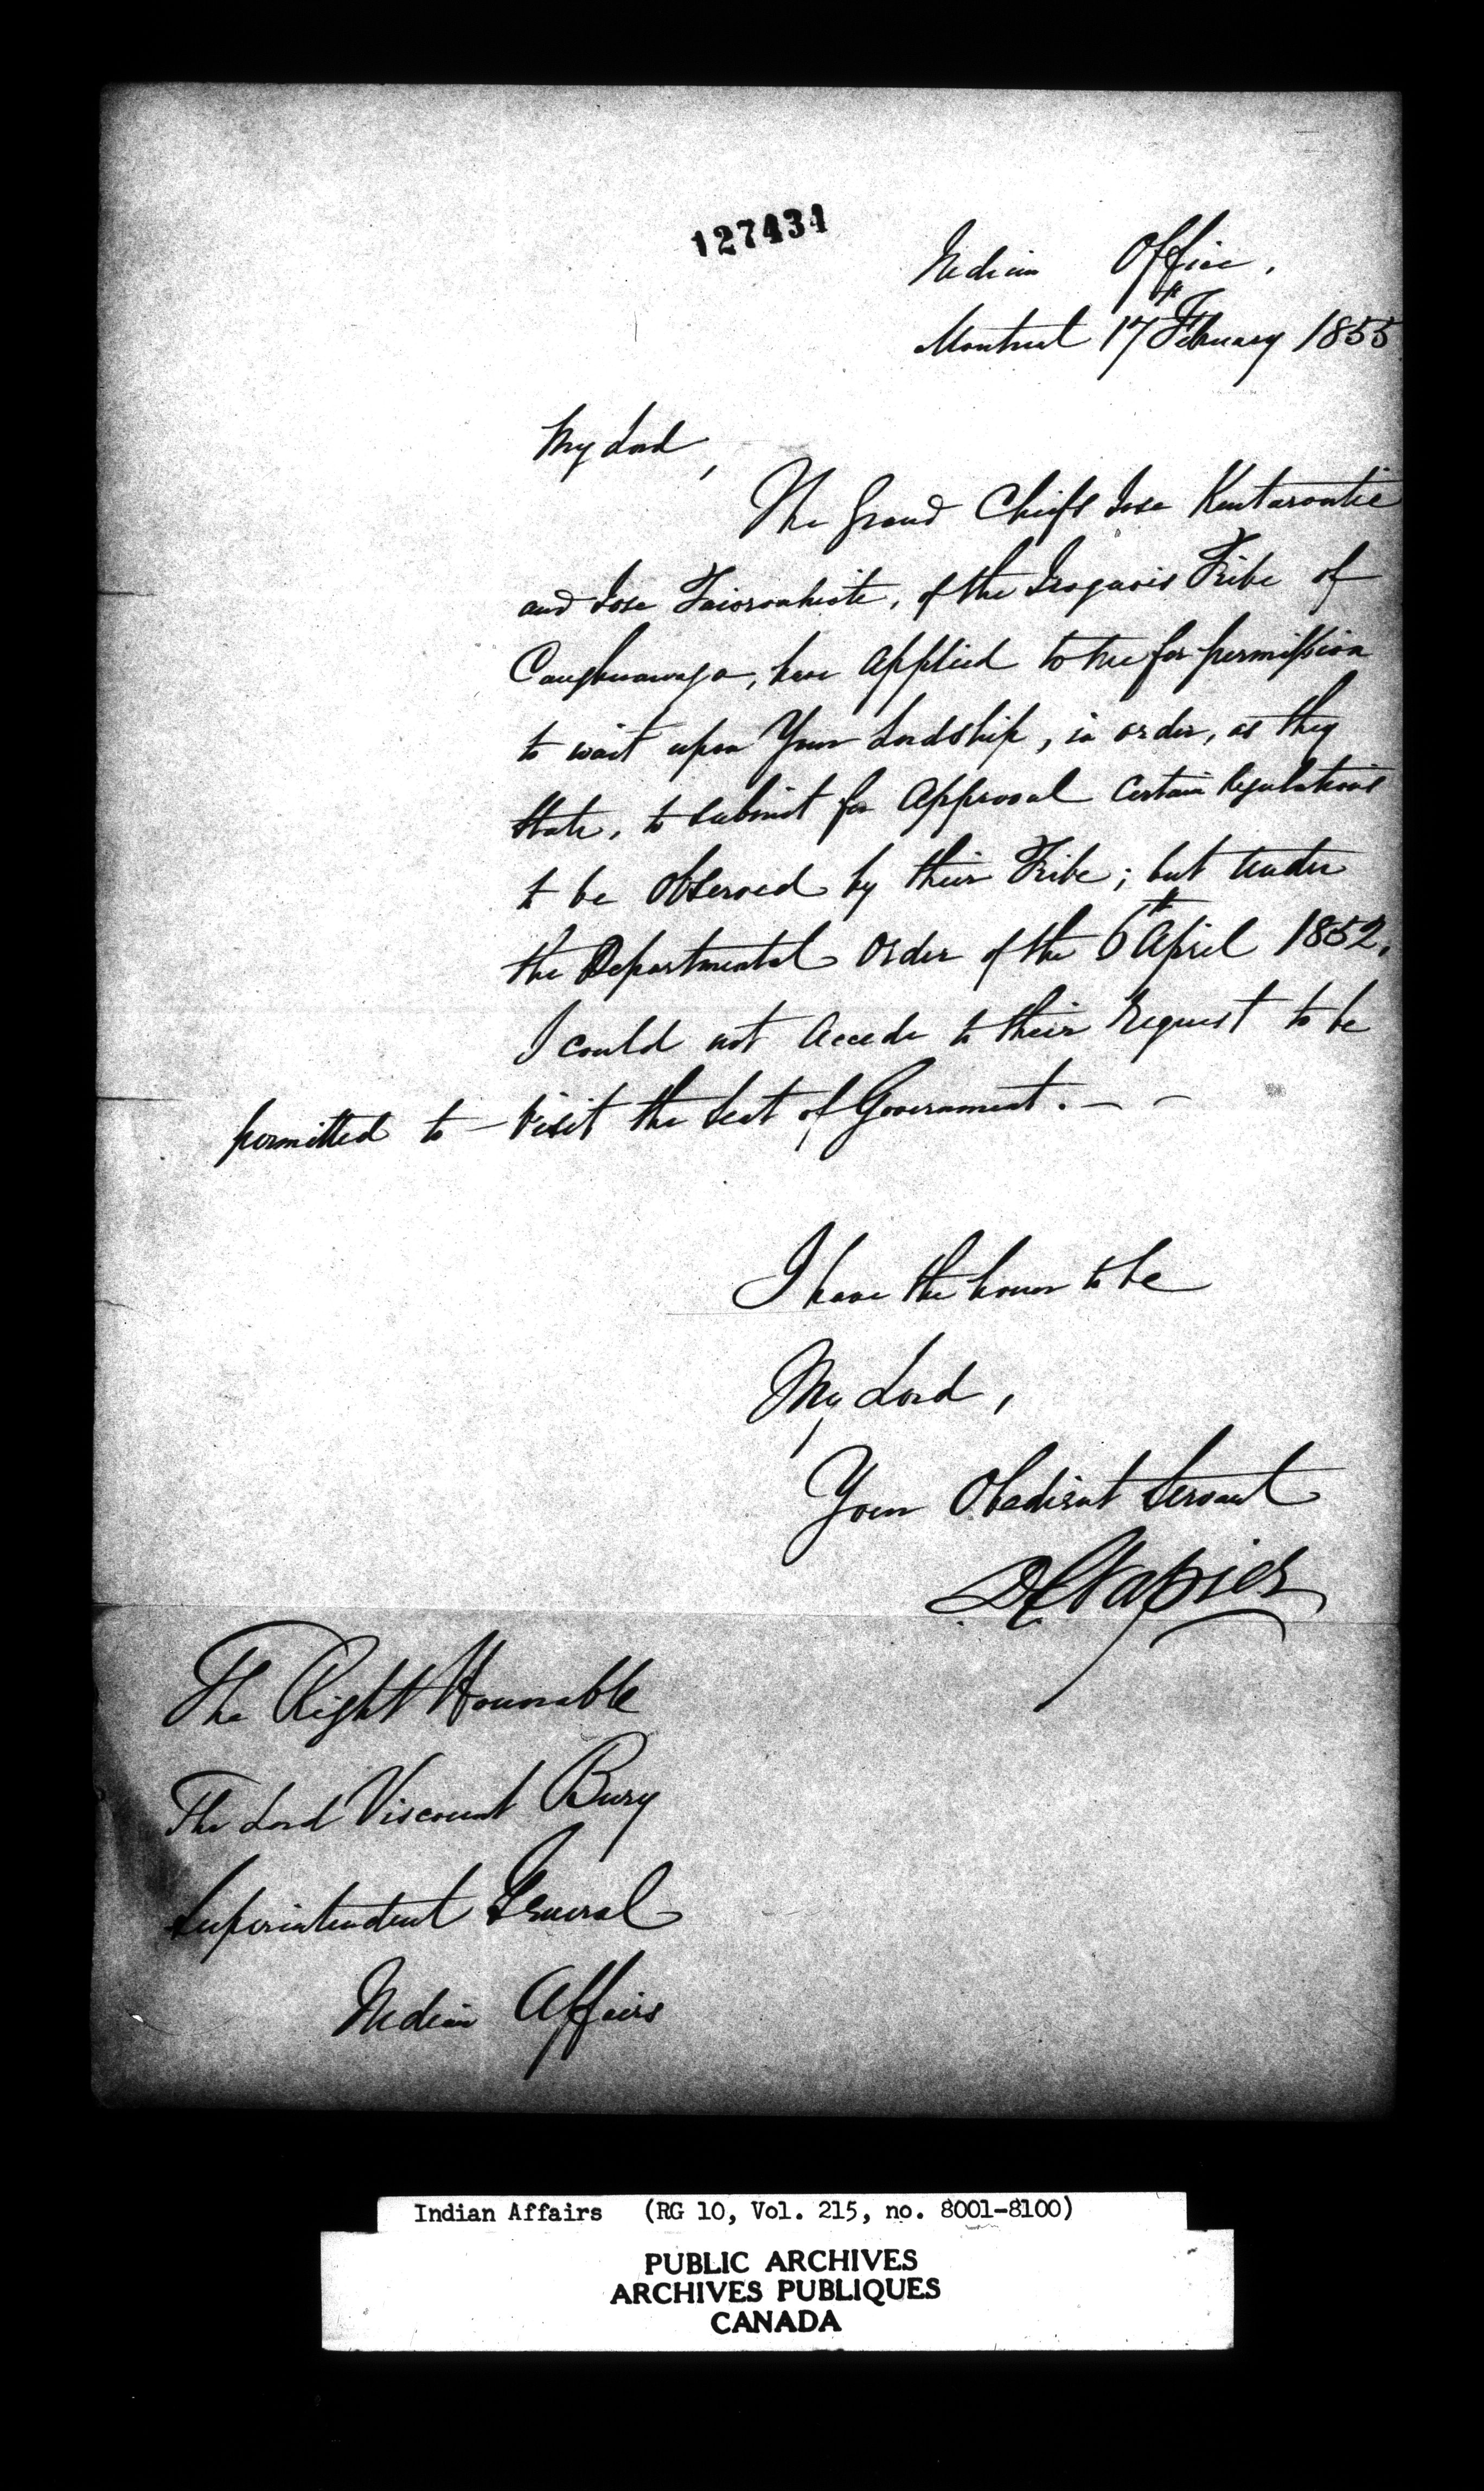 127434
Indian Office,
Montreal 17th February 1855
My Lord,
The Grand Chiefs Jose Kentarontie
and Jose Taioronhiote, of the Iroquois Tribe of
Caughnawaga, have applied to me for permission
to wait upon Your Lordship, in order, as they
State, to submit for Approval Certain Regulations
to be Observed by their Tribe; but Under
the Departmental Order of the 6th April 1852,
I could not Accede to their Request to be
permitted to - Visit the Seat of Government. - -
I have the honor to be
My Lord,
Your Obedient Servant
DCNapier
The Right Honorable
The Lord Viscount Bury
Superintendent General
Indian Affairs
Indian Affairs (RG 10, Vol. 215, no. 8001-8100)
PUBLIC ARCHIVES
ARCHIVES PUBLIQUES
CANADA